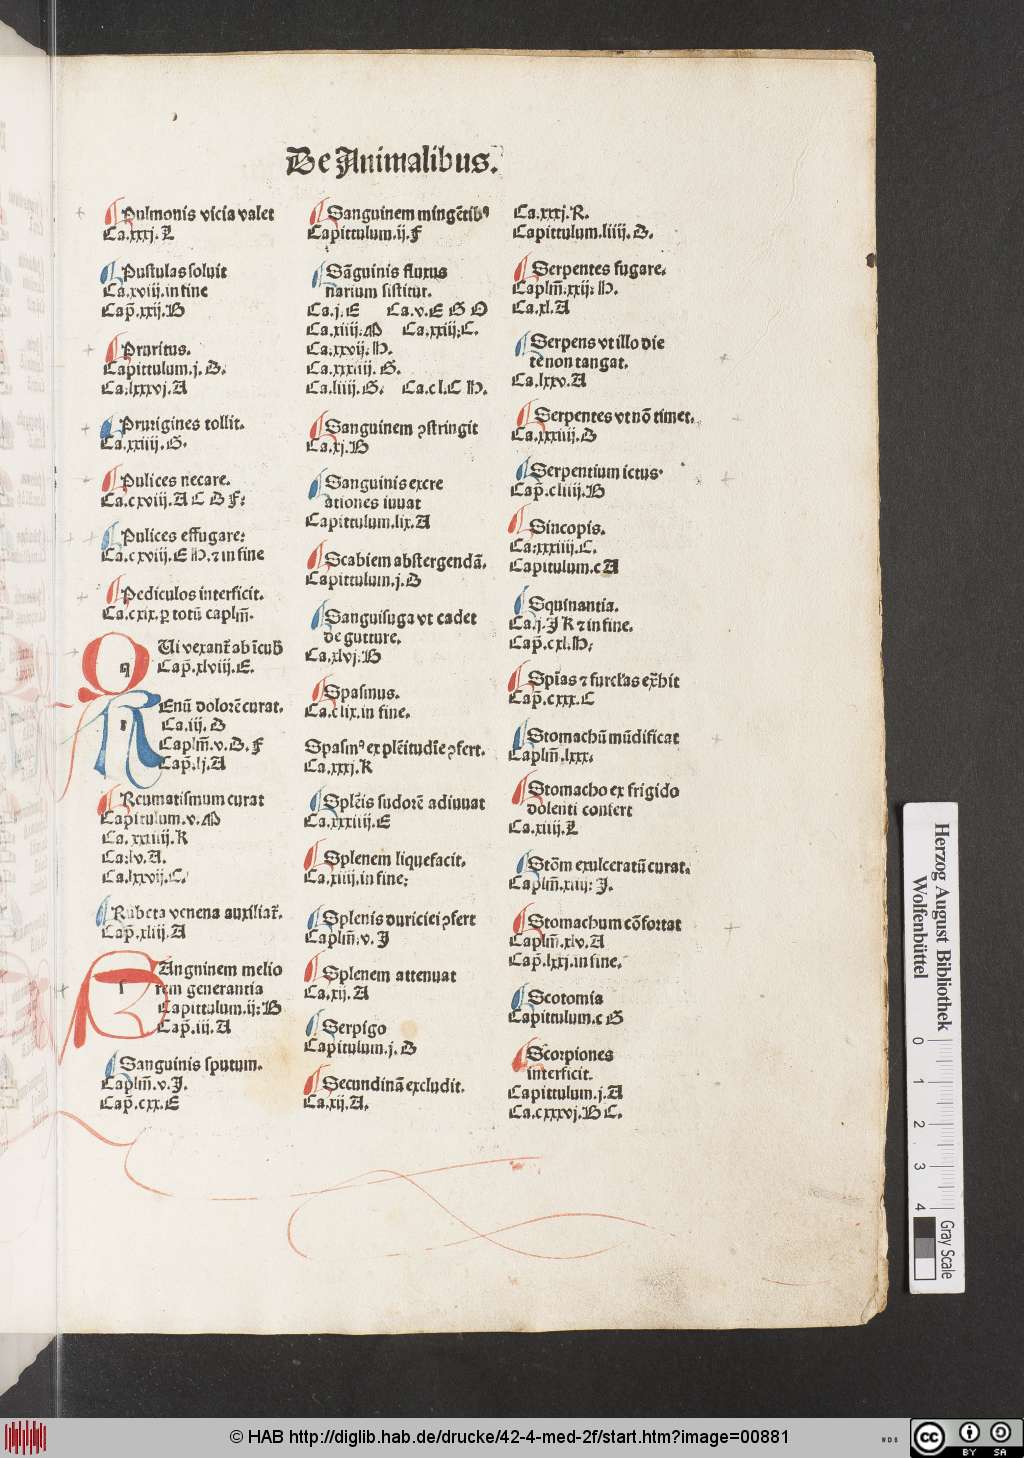 De Animalibus.
Pulmonis vicia valet
Ca.xxxj.L
Pustulas soluit
Ca.xviij.in fine
Cap̃.xxij.H
Pruritus.
Capittulum.j.D.
Ca.lxxxvj.A
Prurigines tollit.
Ca.xxiiij.G.
Pulices necare.
Ca.cxviij.A C D F.
Pulices effugare:
Ca.cxviij.E H.⁊ in fine
Pediculos interficit.
Ca.cxix.ꝑ totũ caplm̃.
Ui vexant᷑ ab ĩcub
Cap̃.xlviij.E.
Enũ dolorẽ curat.
Ca.iij.D
Caplm̃.v.D.F
Cap̃.lj.A
Reumatismum curat
Capitulum.v.M
Ca.xxiiiij.K
Ca.lv.A.
Ca.lxxvij.C.
Rubeta venena auxiliat᷑.
Cap̃.xliij.A
Angninem melio
rem generantia
Capittulum.ij:H
Cap̃.iij.A
Sanguinis sputum.
Caplm̃.v.J.
Cap̃.cxx.E
Sanguinem mingẽtibꝰ
Capittulum.ij.F
Sãguinis fluxus
narium sistitur.
Ca.j.E Ca.v.E G O
Ca.xiiij.M Ca.xxiij:C.
Ca.xxvij.H.
Ca.xxxiiij.G.
Ca.liiij.G. Ca.cl.C H.
Sanguinem ꝯstringit
Ca.xj.H
Sanguinis excre
ationes iuuat
Capittulum.lix.A
Scabiem abstergendã.
Capittulum.j.D
Sanguisuga vt cadet
de gutture.
Ca.xlvj.H
Spasmus.
Ca.clix.in fine.
Spasmꝰ ex plẽitudĩe ꝯfert.
Ca.xxxj.K
Splẽis sudorẽ adiuuat
Ca.xxxiiij.E
Splenem liquefacit.
Ca.xiiij.in fine;
Splenis duriciei ꝯfert
Caplm̃.v.J
Splenem attenuat
Ca.xij.A
Serpigo
Capitulum.j.D
Secundinã excludit.
Ca.xij.A.
Ca.xxxj.R.
Capittulum.liiij.D.
Serpentes fugare.
Caplm̃.xxij.H.
Ca.xl.A
Serpens vt illo die
tẽ non tangat.
Ca.lxxv.A
Serpentes vt nõ timet.
Ca.xxxiiij.D
Serpentium ictus.
Cap̃.cliiij.H
Sincopis.
Ca.xxxiiij.C.
Capitulum.c A
Squinantia.
Ca.j.J K ⁊ in fine.
Cap̃.cxl.H.
Cap̃.cxxx.C
Stomachũ mũdificat
Caplm̃.lxxx.
Stomacho ex frigido
dolenti confert
Ca.xiiij.L
Stõm exulceratũ curat.
Caplm̃.xiiij:J.
Stomachum cõfortat
Caplm̃.xlv.A
Cap̃.lxxj.in fine.
Scotomia
Capitulum.c G
Scorpiones
interficit.
Capittulum.j.A
Ca.cxxxvj.H C.
Herzog August Bibliothek
Wolfenbüttel
0 1 2 3 4
Gray Scale
© HAB http://diglib.hab.de/drucke/42-4-med-2f/start.htm?image=00881
WDB
cc
BY SA